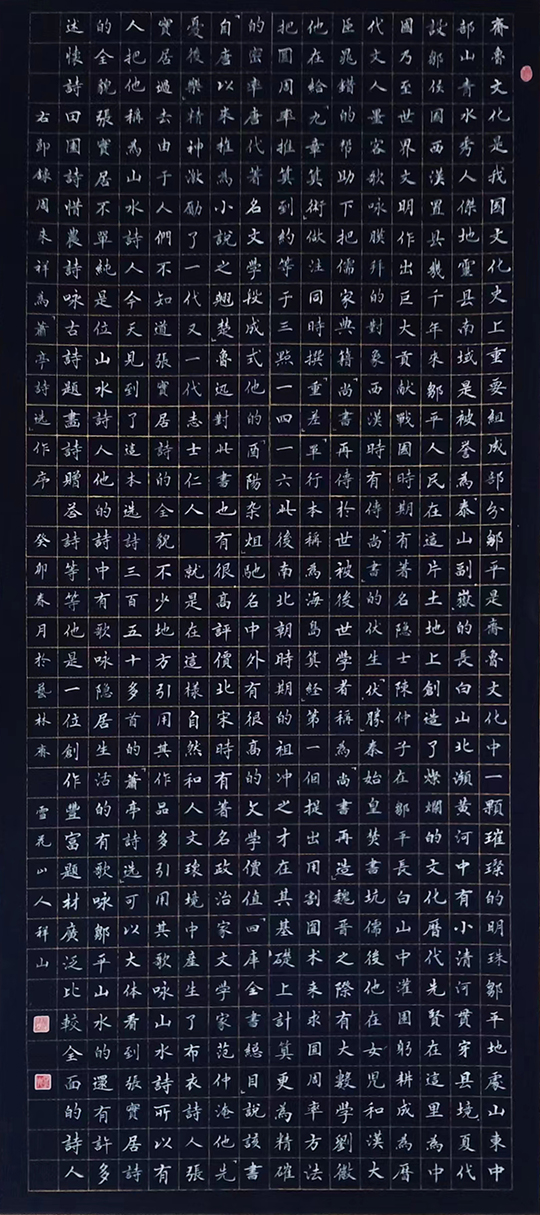 齊魯文化是我國文化史上重要組成部分鄒平是齊魯文化中一顆璀璨的明珠鄒平地處山東中
部山青水秀人傑地靈縣南域是被譽為泰山副嶽的長白山北瀕黃河中有小清河貫穿縣境夏代
設鄒侯國西漢置縣幾千年來鄒平人民在這片土地上創造了燦爛的文化曆代先賢在這里為中
國乃至世界文明作出巨大貢獻戰國時期有著名隱士陳仲子在鄒平長白山中灌園躬耕成為曆
代文人墨客歌咏膜拜的對象西漢時有傳「尚書」的伏生「伏勝」秦始皇焚書坑儒後他在女兒和漢大
臣晁錯的幫助下把儒家典籍「尚書」再傳於世被後世學者稱為「尚書再造」魏晉之際有大數學劉徽
他在給「九章算術」做注同時撰「重差」單行本稱為「海島算經」第一個提出用割圓术来求圓周率方法
把圓周率推算到約等于三點一四一六此後南北朝時期的祖冲之才在其基礎上計算更為精確
的密率唐代著名文學段成式他的「酉陽杂俎」馳名中外有很高的文學價值「四庫全書總目」說該書
自唐以來推為小說之「翹楚」魯迅對此書也有很高評價北宋時有著名政治家文學家范仲淹他「先
憂後樂」精神激勵了一代又一代志士仁人 就是在這樣自然和人文環境中產生了布衣詩人張
實居過去由于人們不知道張實居詩的全貌不少地方引用其作品多引用其歌咏山水詩所以有
人把他稱為山水詩人今天見到了這本選詩三百五十多首的「蕭亭詩選」可以大体看到張實居詩
的全貌張實居不單純是位山水詩人他的詩中有歌咏隱居生活的有歌咏鄒平山水的還有許多
述懷詩田園詩惜農詩咏古詩題畫詩贈荅詩等等他是一位創作豐富題材廣泛比較全面的詩人
右節錄周来祥為蕭亭詩選作序 癸卯春月於藝林齋 雪花山人祥山